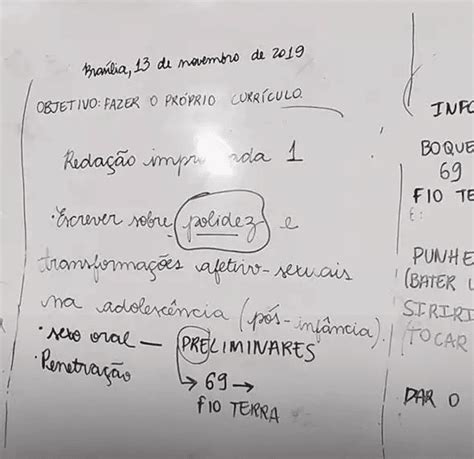 Brasília, 13 de novembro de 2019
OBJETIVO: FAZER O PRÓPRIO CURRÍCULO
Redação 1
• Escrever sobre polidez e
transformações afetivo-sexuais
na adolescência (pós-infância).
• sexo oral — PRELIMINARES
• Penetração
→ 69 →
FIO TERRA
INFO
BOQUE
69
FIO TE
E:
PUNHE
(BATER
SIRIRI
(TOCAR
DAR O